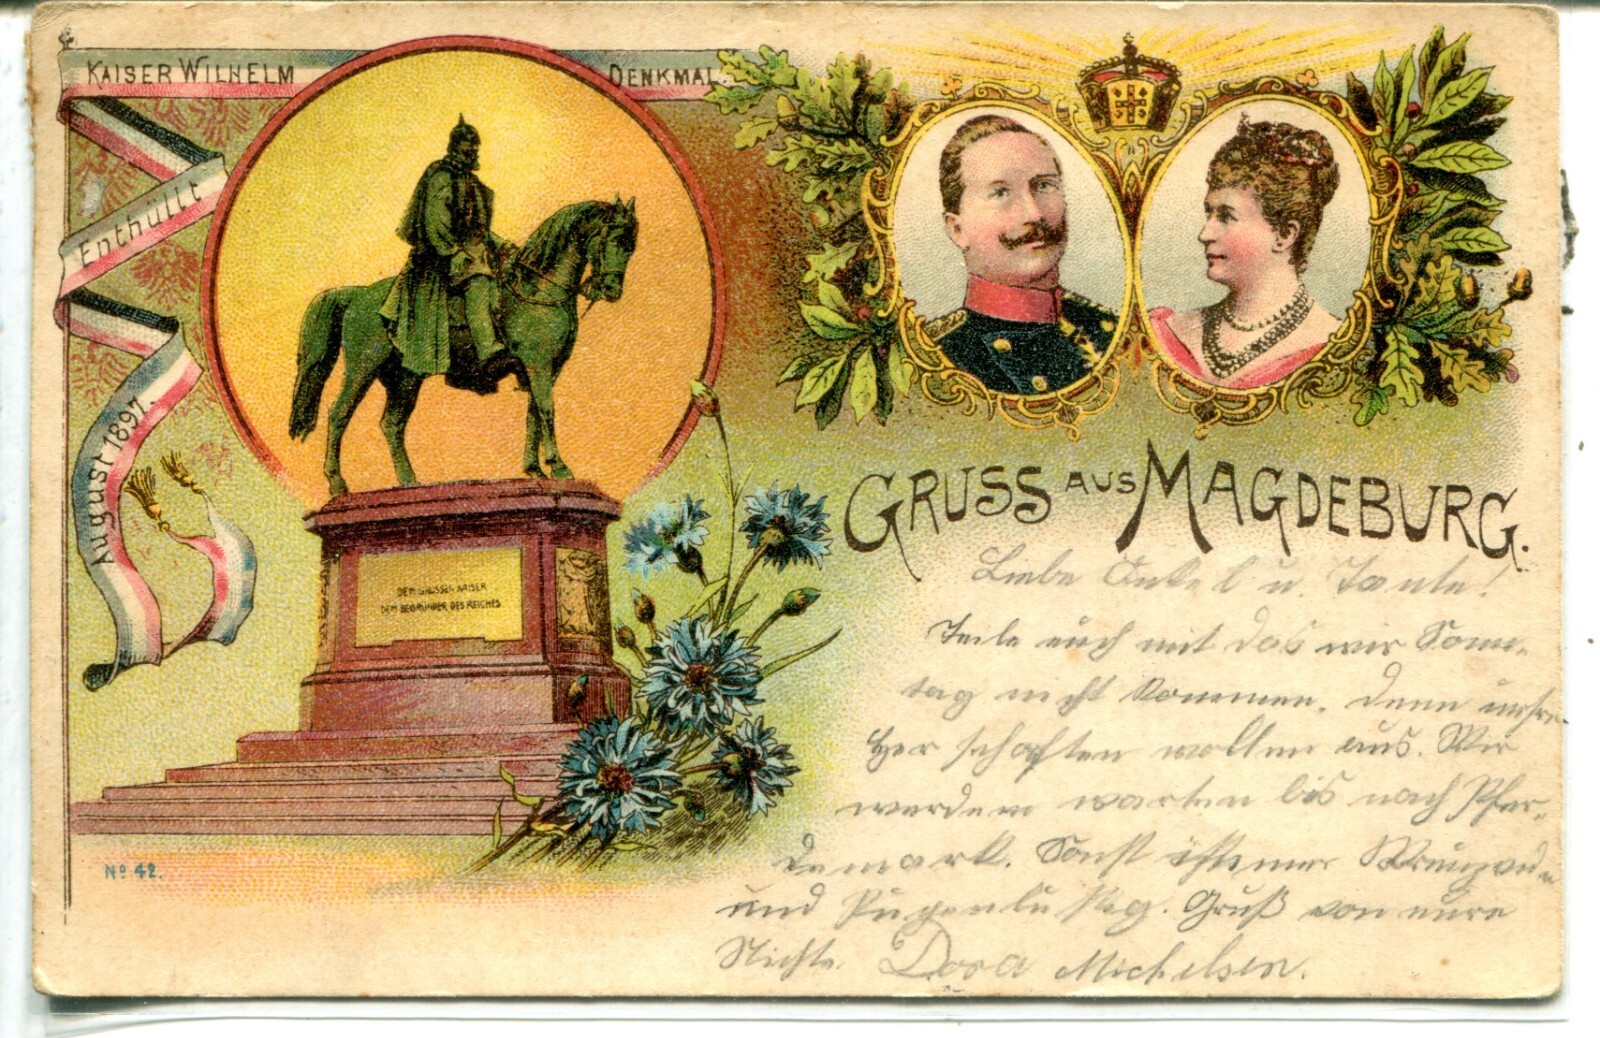 KAISER WILHELM DENKMAL.
Enthüllt
August 1897.
DEM GROSSEN KAISER
DEM BEGRÜNDER DES REICHES
Nº 42.
GRUSS AUS MAGDEBURG.
Liebe Onkel u. Tante!
Teile euch mit das wir Sonn-
tag nicht kommen. denn unsre
Herschaften wollen aus. Wir
werden warten bis nach Pfer-
demark. Sonst ist immer
und Gruß von eure
Nichte. Dora Michelsen.